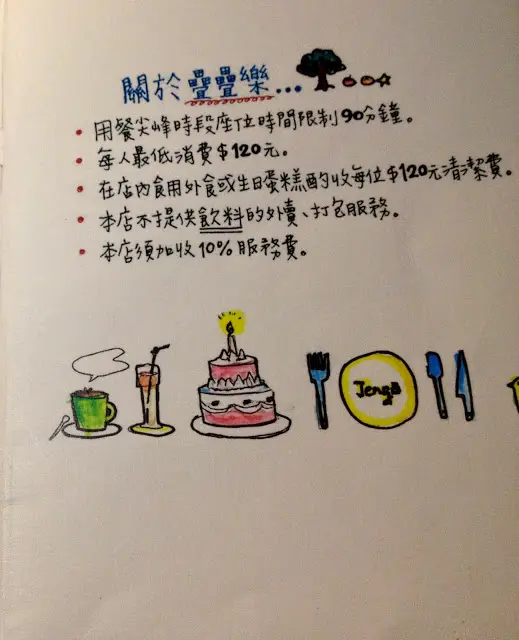 關於疊疊樂...
用餐尖峰時段座位時間限制90分鐘。
每人最低消費$120元。
在店內食用外食或生日蛋糕酌收每位$120元清潔費。
本店不提供飲料的外賣、打包服務。
本店須加收10%服務費。
Jenga